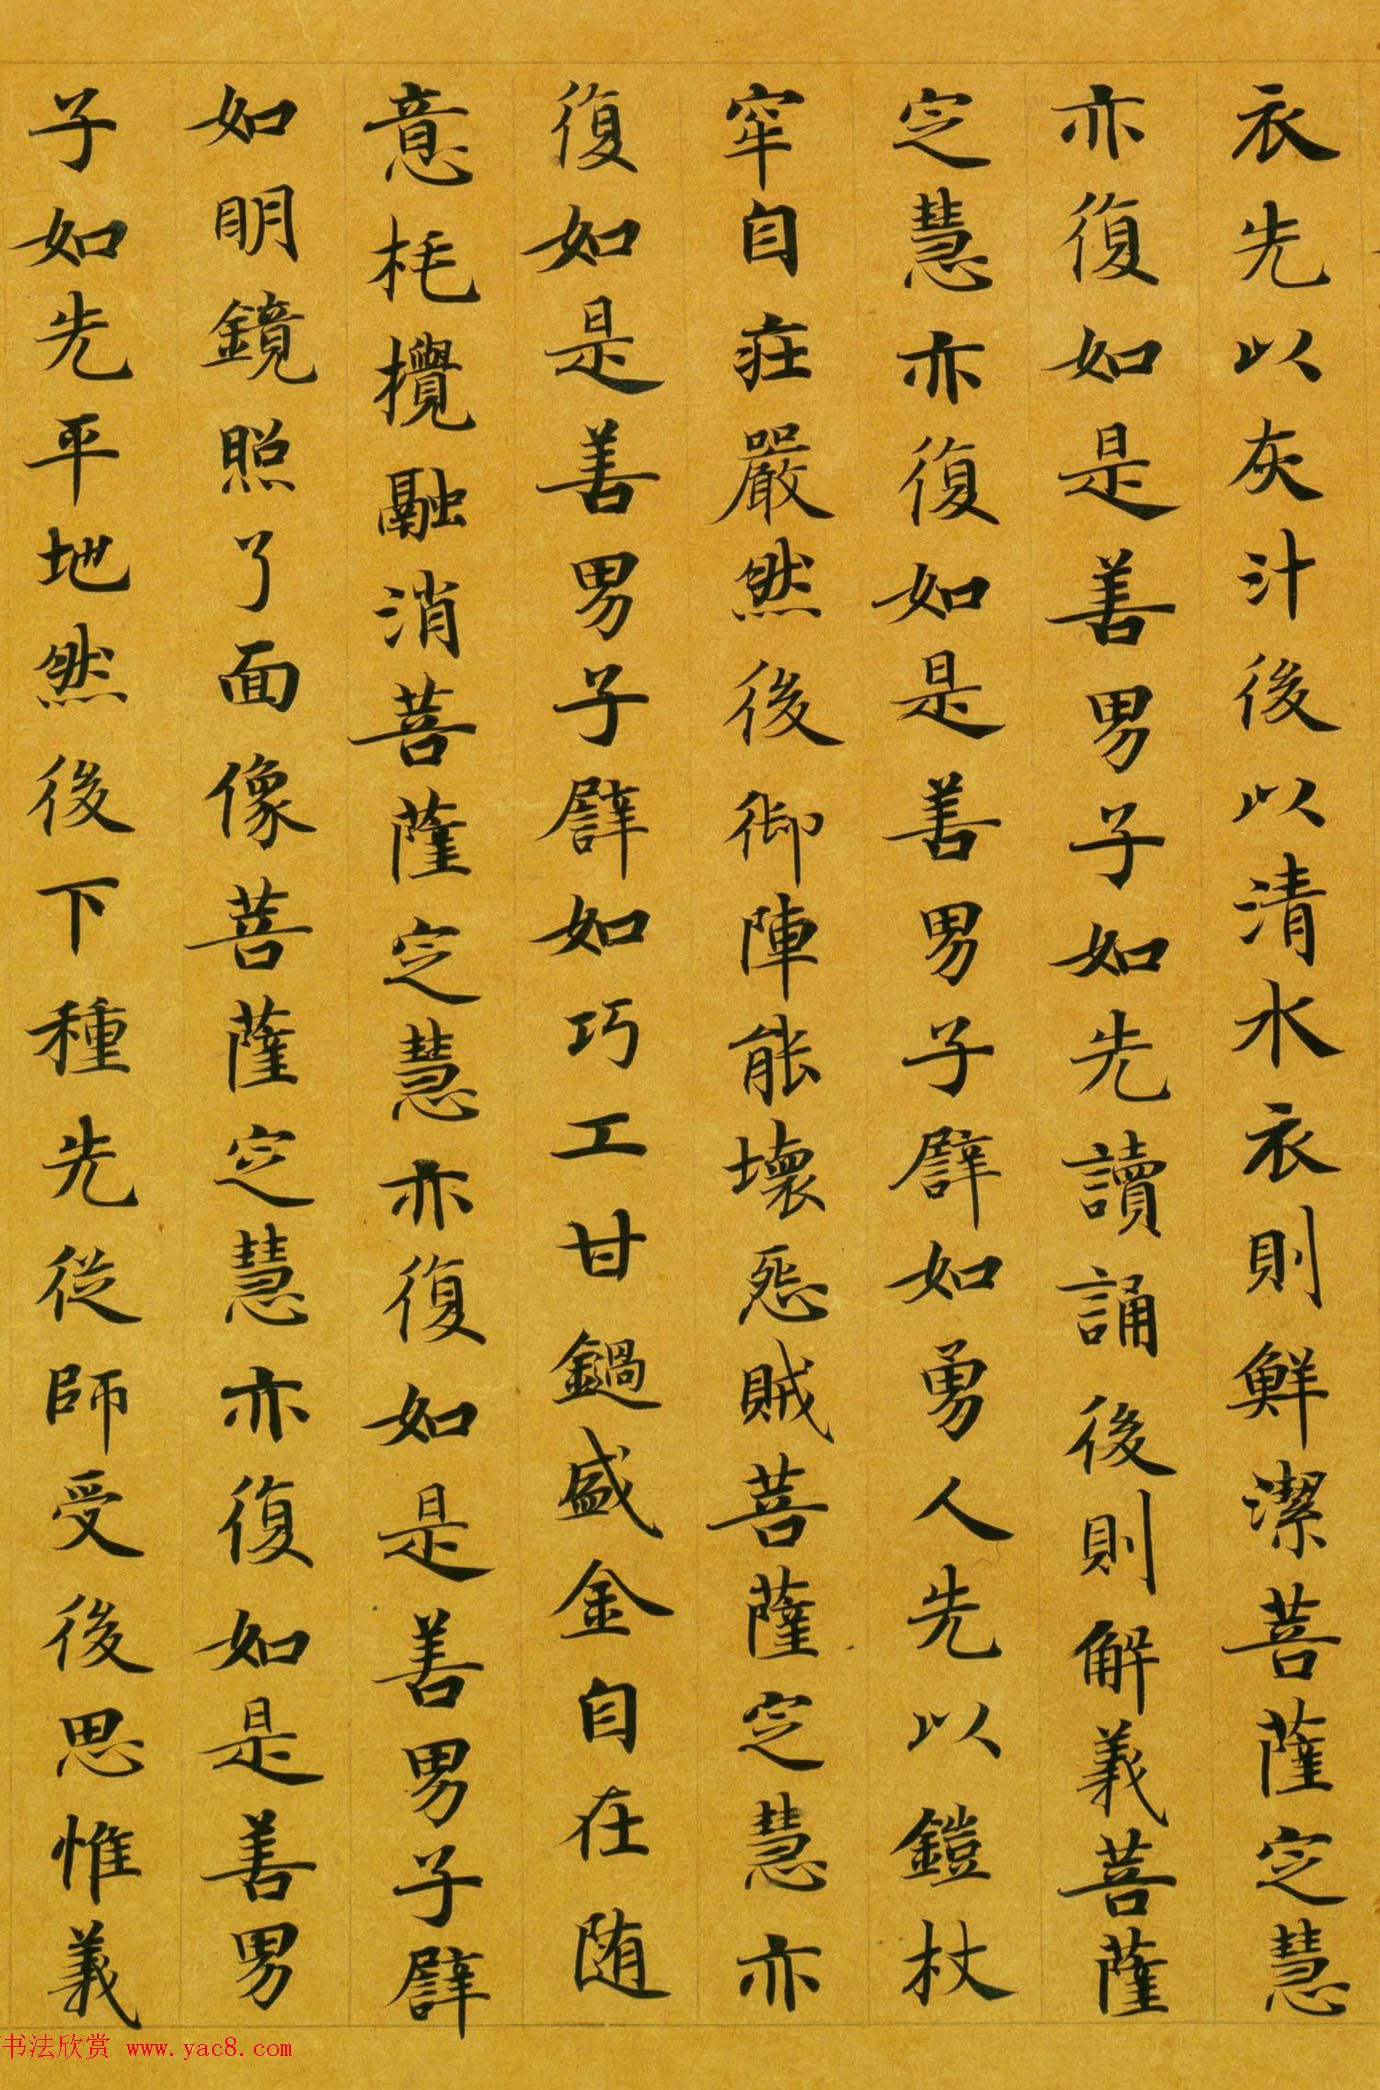 衣先以灰汁後以清水衣則鮮潔菩薩定慧
亦復如是善男子如先讀誦後則解義菩薩
定慧亦復如是善男子譬如勇人先以鎧杖
牢自莊嚴然後御陣能壞怨賊菩薩定慧亦
復如是善男子譬如巧工甘鍋盛金自在随
意秏攪融消菩薩定慧亦復如是善男子譬
如明鏡照了面像菩薩定慧亦復如是善男
子如先平地然後下種先從師受後思惟義
书法欣赏 www.yac8.com